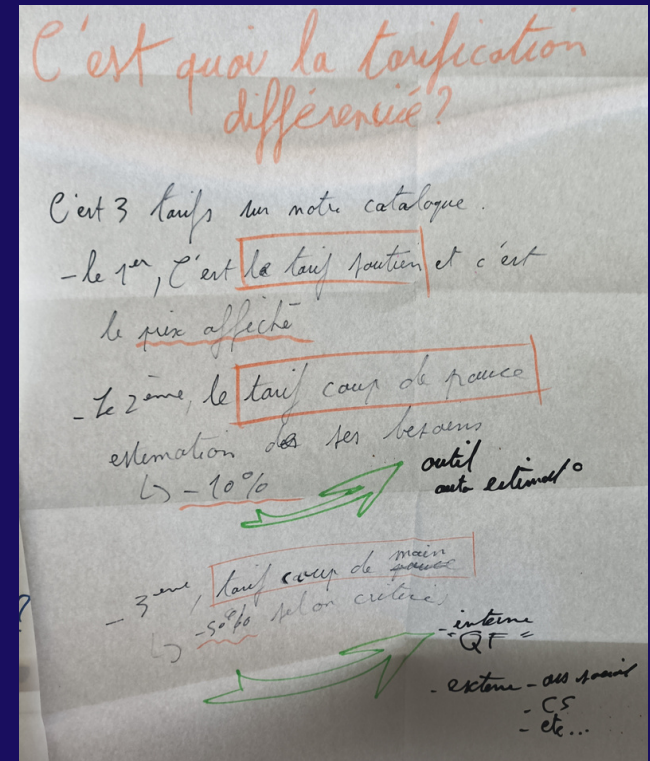 C'est quoi la tarification
différenciée?
C'est 3 tarifs sur notre catalogue.
- le 1er, C'est le tarif soutien et c'est
le prix affiché
- Le 2ème, le tarif coup de pouce
estimation de ses besoins
↳ -10%
outil
auto estimat°
- 3eme, tarif coup de main
↳ -50% selon critères
- interne
"QF"
- externe - ass social
- CS
- etc...